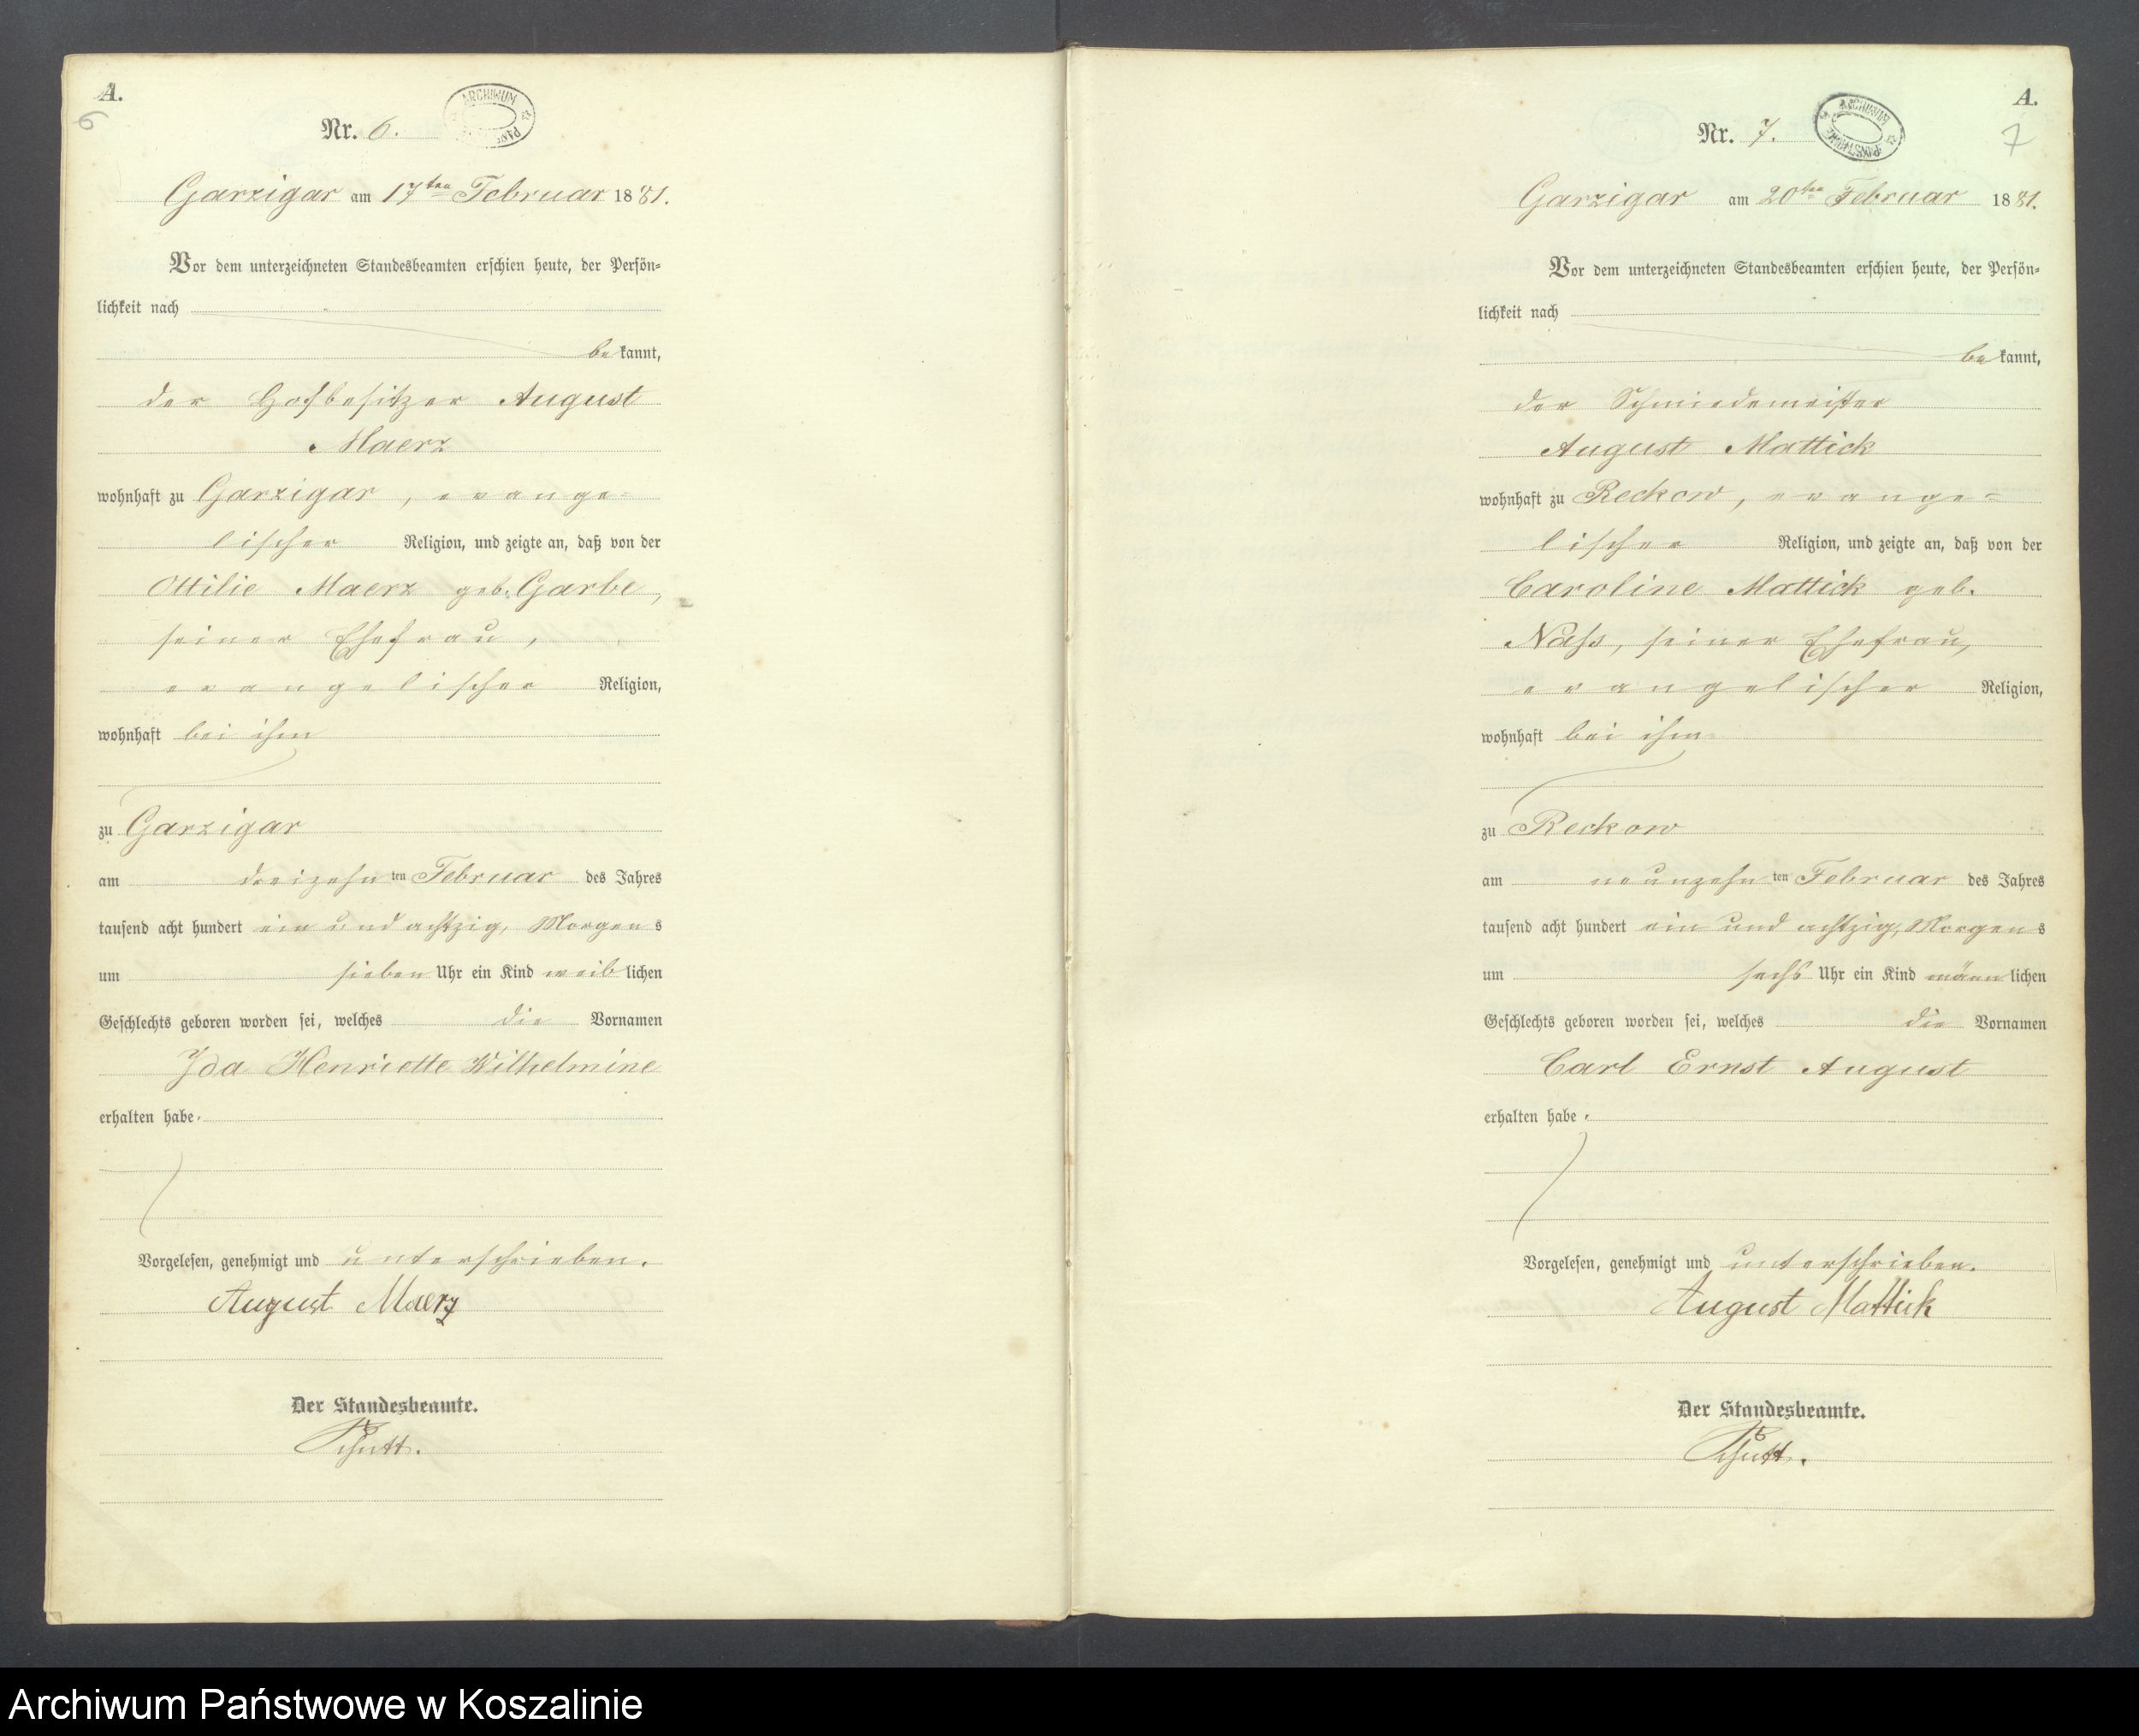 A.
6
Nr. 6.
ARCHIWUM
Garzigar am 17ten Februar 1881.
Vor dem unterzeichneten Standesbeamten erschien heute, der Persön-
lichkeit nach
bekannt,
der Hofbesitzer August
Maerz
wohnhaft zu Garzigar, evange-
lischer Religion, und zeigte an, daß von der
Ottilie Maerz geb. Garbe,
seiner Ehefrau,
evangelischer Religion,
wohnhaft bei ihm
zu Garzigar
am dreizehnten Februar des Jahres
tausend acht hundert ein und achtzig, Morgens
um sieben Uhr ein Kind weiblichen
Geschlechts geboren worden sei, welches die Vornamen
Ida Henriette Wilhelmine
erhalten habe.
Vorgelesen, genehmigt und unterschrieben.
August Maerz
Der Standesbeamte.
A.
7
Nr. 7.
ARCHIWUM PAŃSTWOWE
Garzigar am 20ten Februar 1881.
Vor dem unterzeichneten Standesbeamten erschien heute, der Persön-
lichkeit nach
bekannt,
der Schmiedemeister
August Mattick
wohnhaft zu Reckow, evange-
lischer Religion, und zeigte an, daß von der
Caroline Mattick geb.
Nass, seiner Ehefrau,
evangelischer Religion,
wohnhaft bei ihm
zu Reckow
am neunzehnten Februar des Jahres
tausend acht hundert ein und achtzig, Morgens
um sechs Uhr ein Kind männlichen
Geschlechts geboren worden sei, welches die Vornamen
Carl Ernst August
erhalten habe.
Vorgelesen, genehmigt und unterschrieben.
August Mattick
Der Standesbeamte.
Archiwum Państwowe w Koszalinie